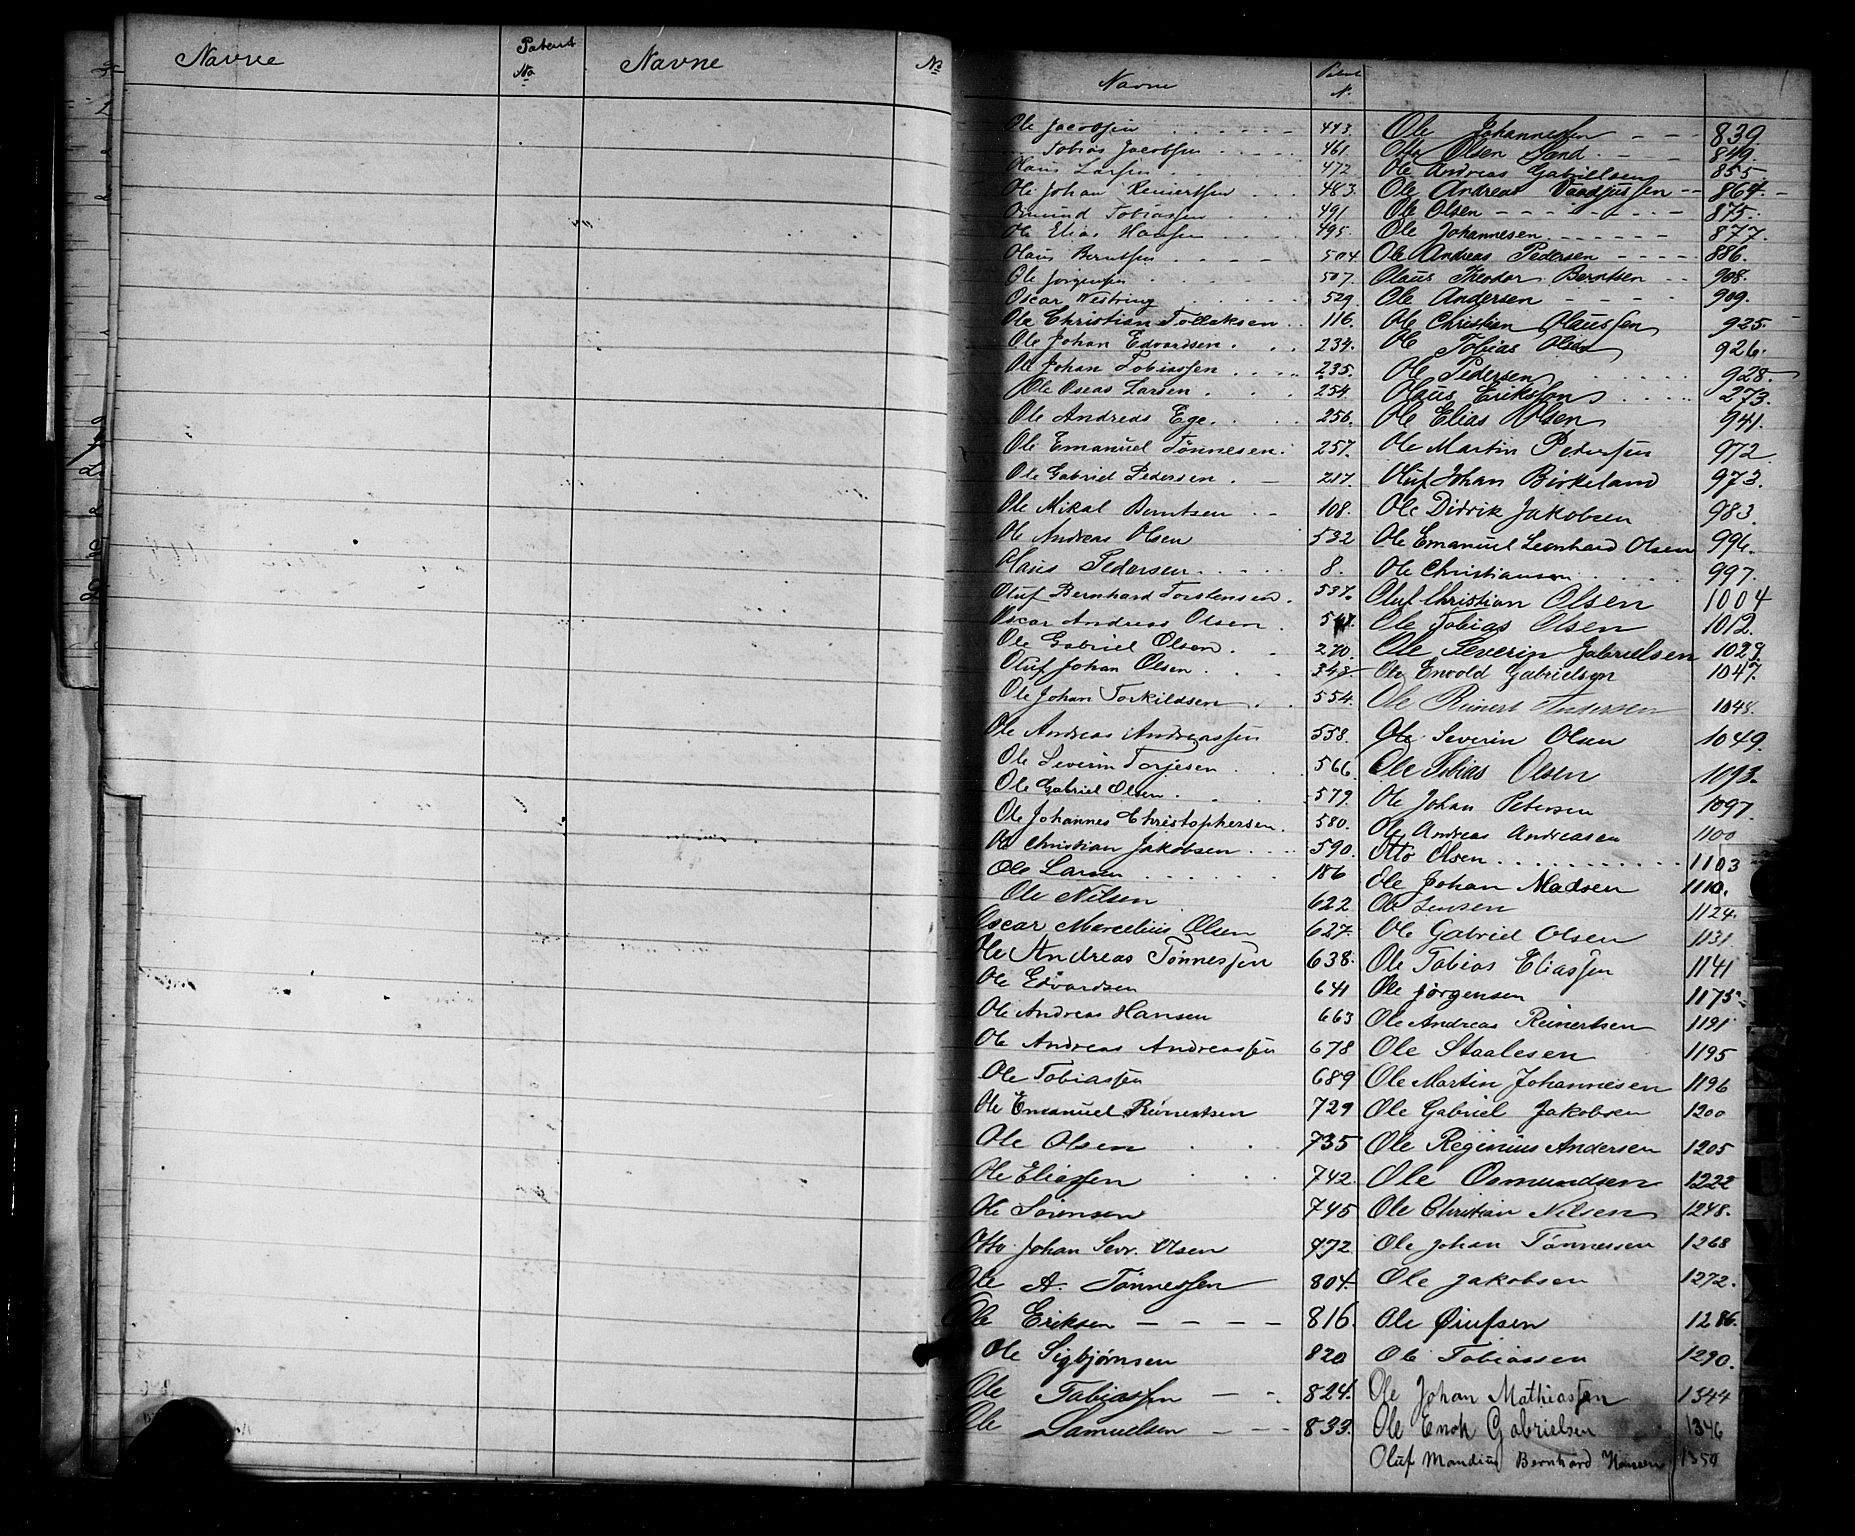 Navne Patent No Navne No
Navne Patent N.
Ole Jacobsen 443. Ole Johannessen 839.
Tobias Jacobsen 461. Otto Olsen Sand 849.
Olaus Larsen 472 Ole Andreas Gabrielsen 855.
Ole Johan Reinertsen 483. Ole Andreas 864
Omund Tobiassen 491. Ole Olsen 875.
Ole Elias Hansen 495. Ole Johannesen 877.
Olaus Berntsen 504 Ole Andreas Pedersen 886.
Ole Jörgensen 507. Olaus Theodor Berntsen 908.
Oscar Westring 529. Ole Andersen 909.
Ole Christian Tollaksen 116. Ole Christian Olaussen 925.
Ole Johan Edvardsen 234. Ole Tobias Olsen 926.
Ole Johan Tobiassen 235. Ole Pedersen 928.
Ole Oseas Larsen 254. Olaus Eriksson 273.
Ole Andreas Ege 256. Ole Elias Olsen 941.
Ole Emanuel Tönnesen 257. Ole Martin Petersen 972
Ole Gabriel Pedersen 217. Oluf Johan Birkeland 973.
Ole Mikal Berntsen 108. Ole Didrik Jakobsen 983.
Ole Andreas Olsen 532 Ole Emanuel Leonhard Olsen 996.
Olaus Pedersen 8. Ole Christiansen 997.
Oluf Bernhard Torstensen 537. Oluf Christian Olsen 1004
Oscar Andreas Olsen Ole Tobias Olsen 1012.
Ole Gabriel Olsen 270. Ole Severin Gabrielsen 1029
Oluf Johan Olsen 348 Ole Envold Gabrielsen 1047.
Ole Johan Torkildsen 554. Ole Reinert Andersen 1048.
Ole Andreas Andreassen 558. Ole Severin Olsen 1049.
Ole Severin Torjesen 566. Ole Tobias Olsen 1093.
Ole Gabriel Olsen 579. Ole Johan Petersen 1097.
Ole Johannes Christophersen 580. Ole Andreas Andreasen 1100
Ole Christian Jakobsen 590. Otto Olsen 1103
Ole Larsen 186 Ole Johan Madsen 1110.
Ole Nilsen 622 Ole Jensen 1124.
Oscar Marcelius Olsen 627. Ole Gabriel Olsen 1131
Ole Andreas Tönnessen 638. Ole Tobias Eliassen 1141
Ole Edvardsen 641 Ole Jörgensen 1175
Ole Andreas Hansen 663 Ole Andreas Reinertsen 1191
Ole Andreas Andreassen 678 Ole Staalesen 1195
Ole Tobiassen 689 Ole Martin Johannesen 1196
Ole Emanuel Reinertsen 729 Ole Gabriel Jakobsen 1200
Ole Olsen 735 Ole Reginius Andersen 1205
Ole Eliassen 742. Ole Osmundsen 1222
Ole Sörensen 745 Ole Christian Nilsen 1248.
Otto Johan Sevr. Olsen 772 Ole Johan Tönnessen 1268
Ole A. Tönnessen 804. Ole Jakobsen 1272.
Ole Eriksen 816. Ole 1286.
Ole Sigbjørnsen 820 Ole Tobiassen 1290.
Ole Tobiassen 824. Ole Johan Mathiassen 1344
Ole Samuelsen 833. Ole Enok Gabrielsen 1346
Oluf Mandius Bernhard Hansen 1350